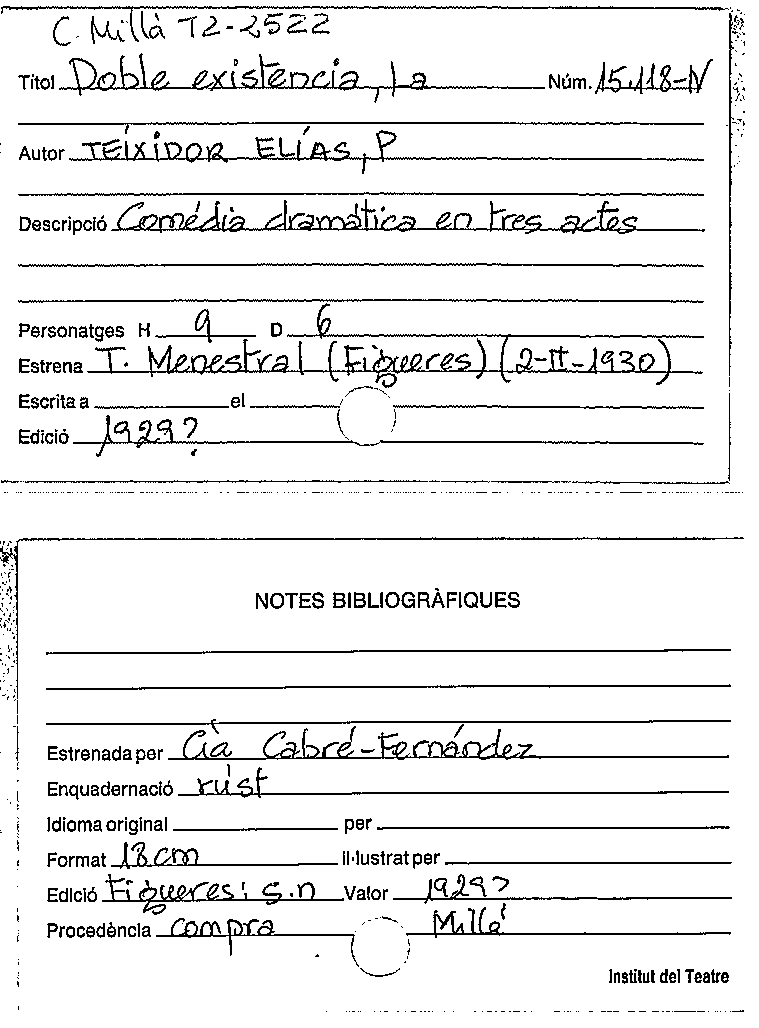 C. Millà T2-2522
Títol Doble existència, La Núm. 15.118-IV
Autor TEIXIDOR ELÍAS, P
Descripció Comédia dramática en tres actes
Personatges H 9 D 6
Estrena T. Menestral (Figueres) (2-II-1930)
Escrita a el
Edició 1929?
NOTES BIBLIOGRÀFIQUES
Estrenada per Cià Cabré-Fernández
Enquadernació rúst
Idioma original per
Format 18 cm il·lustrat per
Edició Figueres: s.n Valor 1929?
Procedència compra Millá
Institut del Teatre